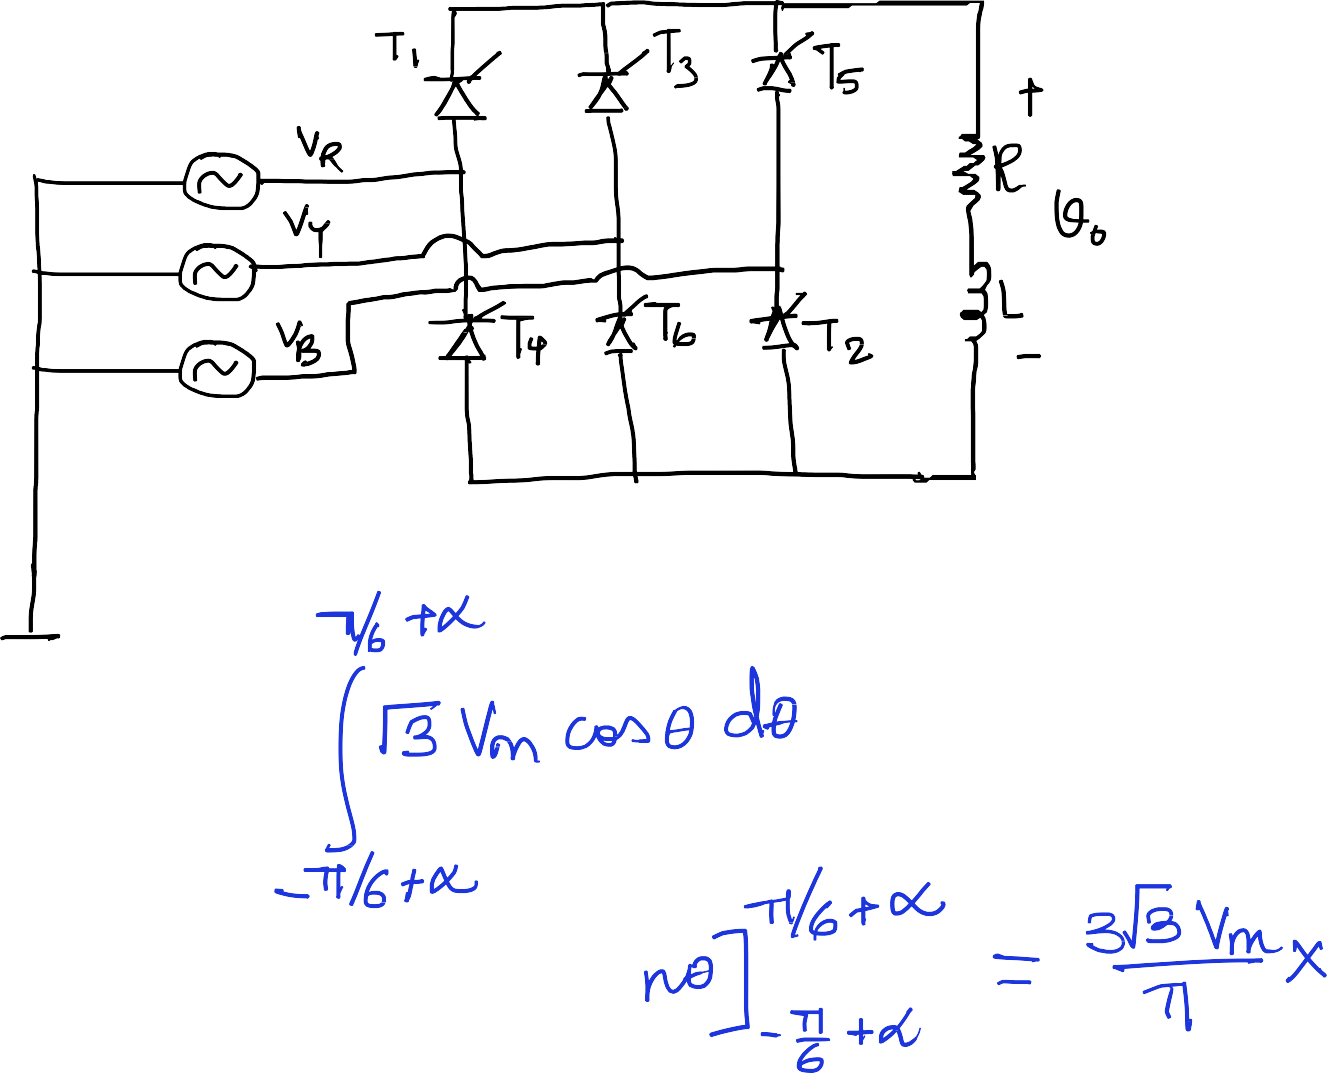 T1 T3 T5
VR
VY
VB
T4 T6 T2
+
R
L
υo
−
π/6 + α
∫ √3 Vm cos θ dθ
−π/6 + α
nθ]
π/6 + α
−π/6 + α
= 3√3 Vm / π ×